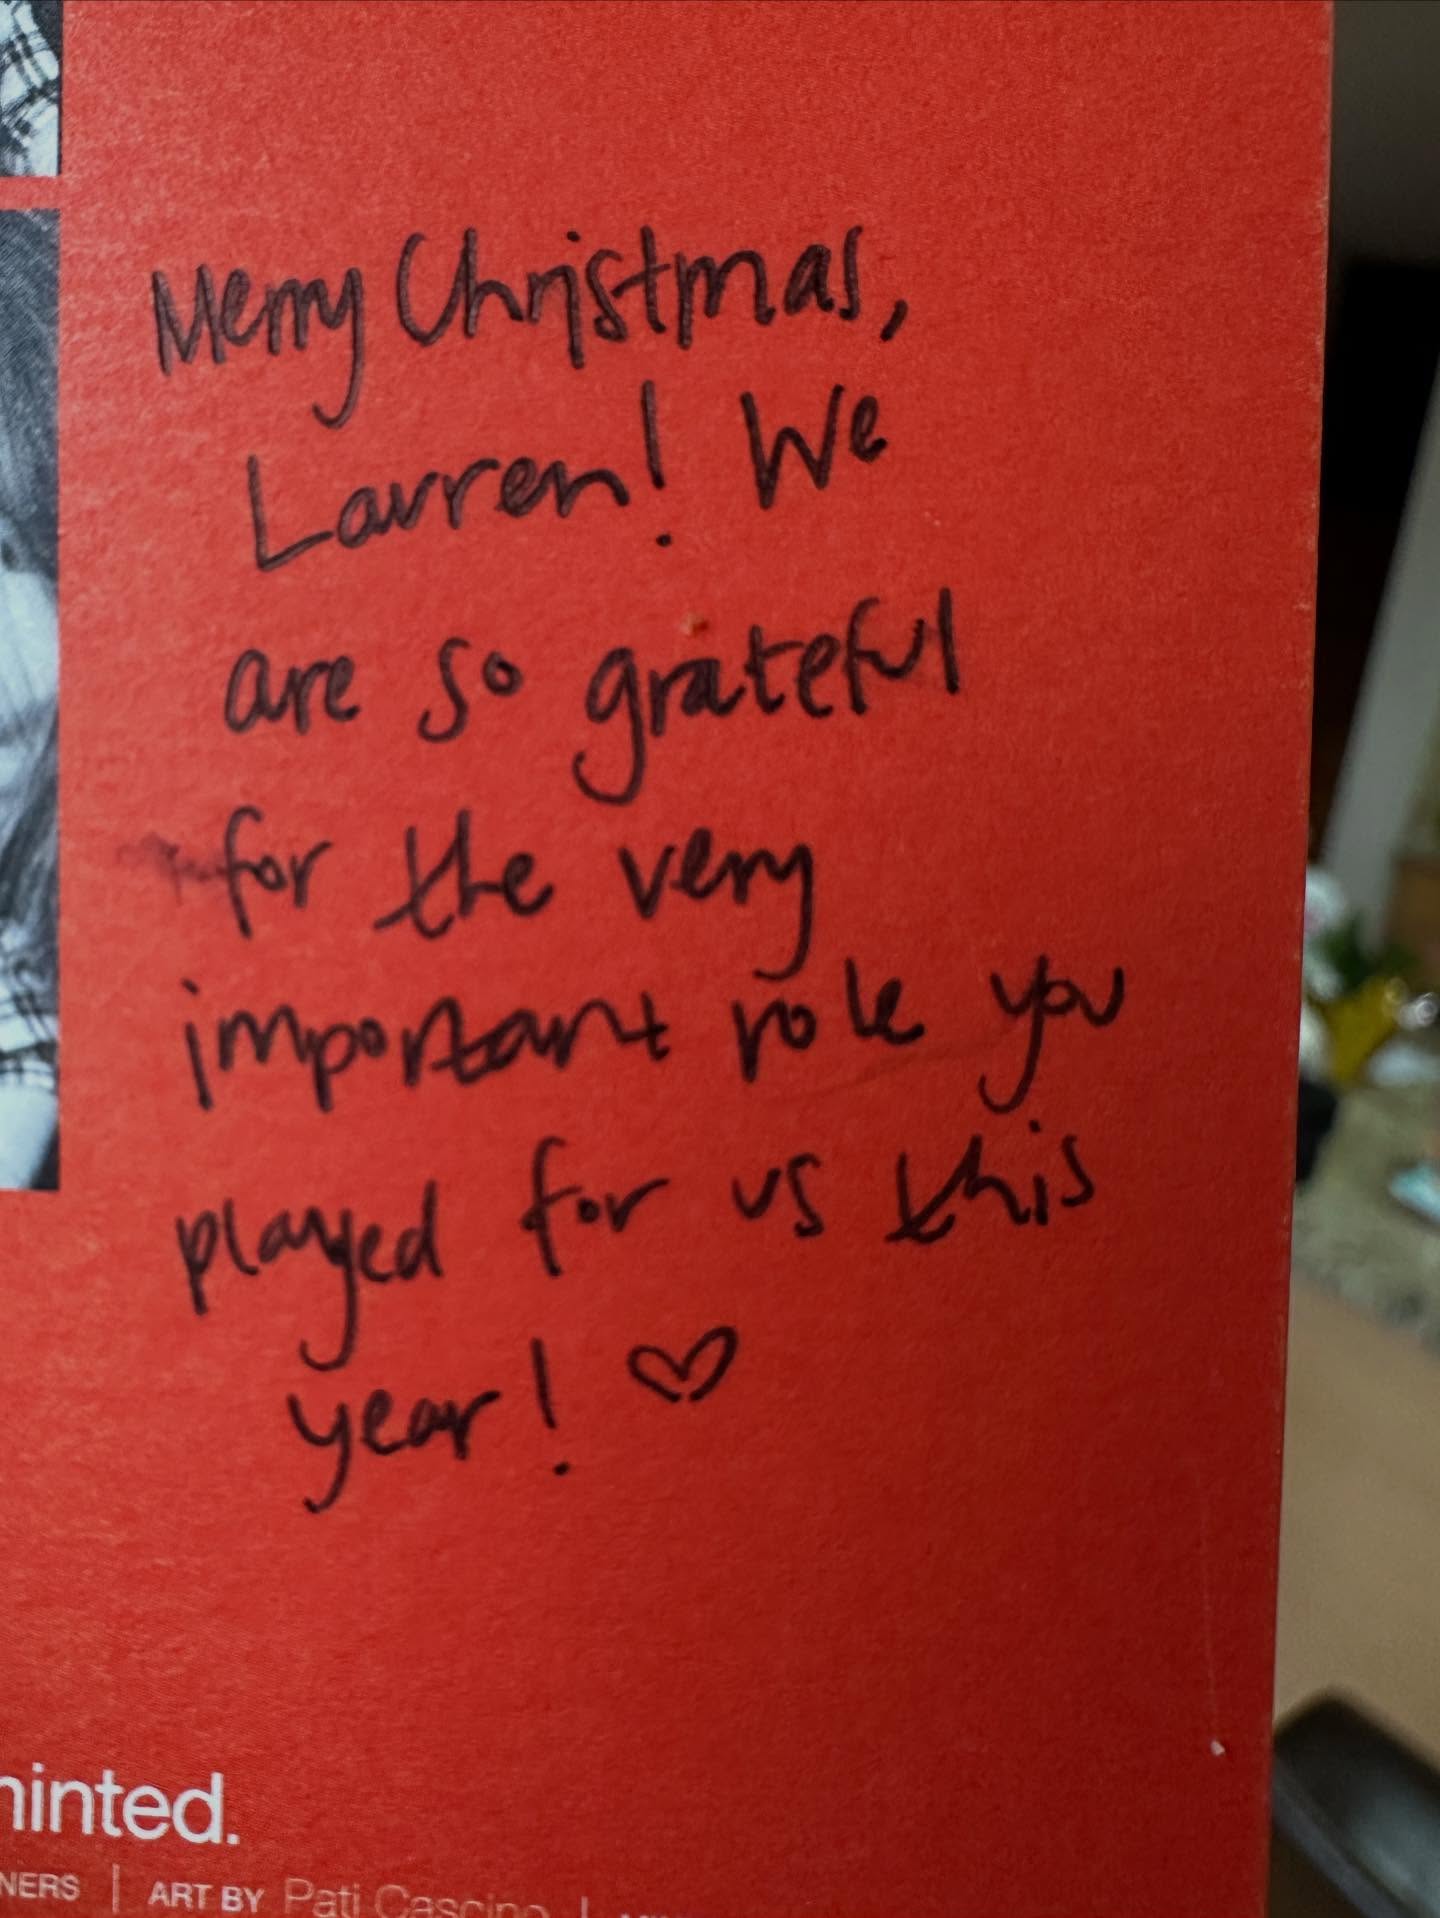 Merry Christmas,
Lauren! We
are so grateful
for the very
important role you
played for us this
year! ♡
minted.
NERS | ART BY Pati Cascino |